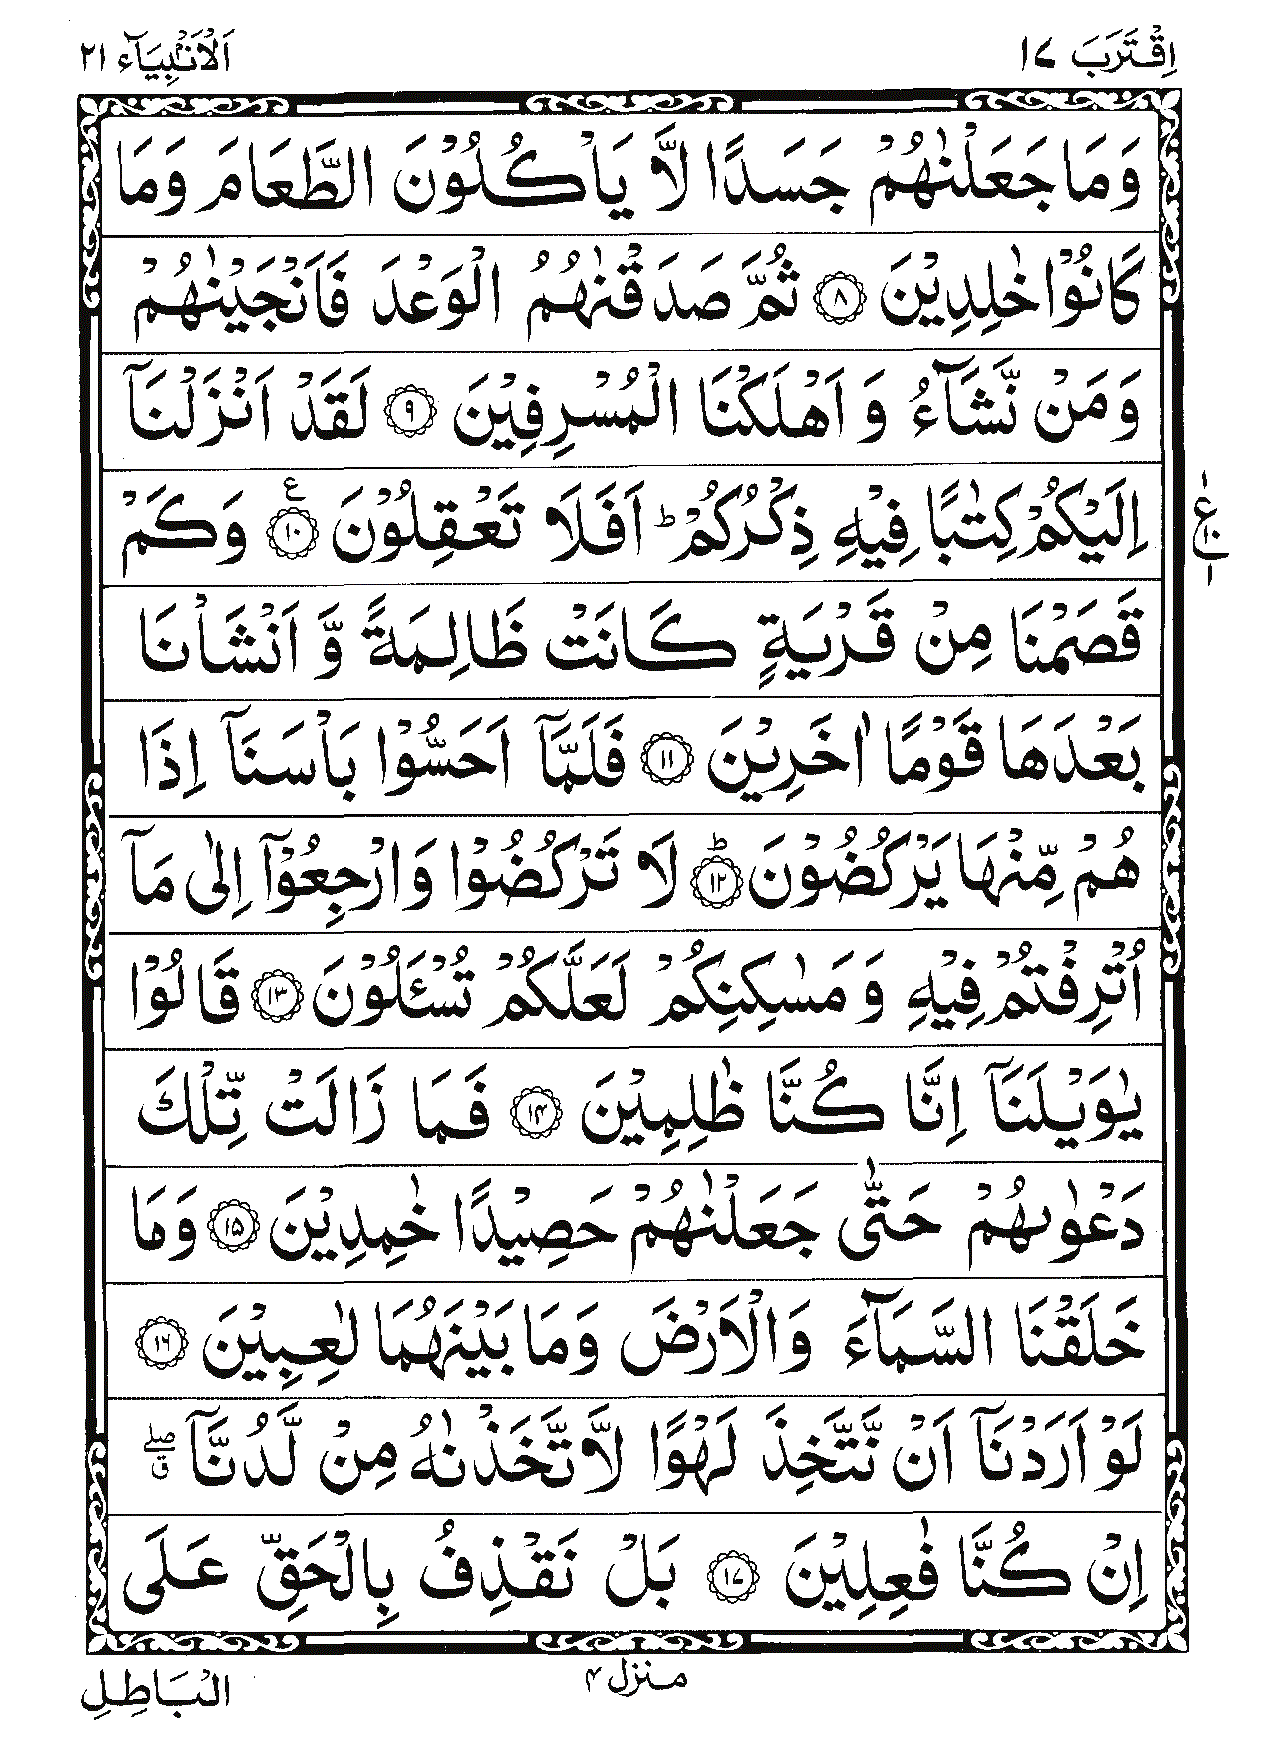 اِقْتَرَبَ ١٧
اَلْاَنْۢبِيَآء ٢١
وَمَا جَعَلْنٰهُمْ جَسَدًا لَّا يَاْكُلُوْنَ الطَّعَامَ وَمَا
كَانُوْا خٰلِدِيْنَ ۝٨ ثُمَّ صَدَقْنٰهُمُ الْوَعْدَ فَاَنْجَيْنٰهُمْ
وَمَنْ نَّشَآءُ وَ اَهْلَكْنَا الْمُسْرِفِيْنَ ۝٩ لَقَدْ اَنْزَلْنَآ
اِلَيْكُمْ كِتٰبًا فِيْهِ ذِكْرُكُمْ ؕ اَفَلَا تَعْقِلُوْنَ ۝١٠ ع وَكَمْ
ع ١٠ ١
قَصَمْنَا مِنْ قَرْيَةٍ كَانَتْ ظَالِمَةً وَّ اَنْشَاْنَا
بَعْدَهَا قَوْمًا اٰخَرِيْنَ ۝١١ فَلَمَّآ اَحَسُّوْا بَاْسَنَآ اِذَا
هُمْ مِّنْهَا يَرْكُضُوْنَ ؕ۝١٢ لَا تَرْكُضُوْا وَارْجِعُوْٓا اِلٰى مَآ
اُتْرِفْتُمْ فِيْهِ وَ مَسٰكِنِكُمْ لَعَلَّكُمْ تُسْـَٔلُوْنَ ۝١٣ قَالُوْا
يٰوَيْلَنَآ اِنَّا كُنَّا ظٰلِمِيْنَ ۝١٤ فَمَا زَالَتْ تِّلْكَ
دَعْوٰىهُمْ حَتّٰى جَعَلْنٰهُمْ حَصِيْدًا خٰمِدِيْنَ ۝١٥ وَمَا
خَلَقْنَا السَّمَآءَ وَالْاَرْضَ وَمَا بَيْنَهُمَا لٰعِبِيْنَ ۝١٦
لَوْ اَرَدْنَآ اَنْ نَّتَّخِذَ لَهْوًا لَّاتَّخَذْنٰهُ مِنْ لَّدُنَّآ ۖق
اِنْ كُنَّا فٰعِلِيْنَ ۝١٧ بَلْ نَقْذِفُ بِالْحَقِّ عَلَى
منزل ۴
الْبَاطِلِ